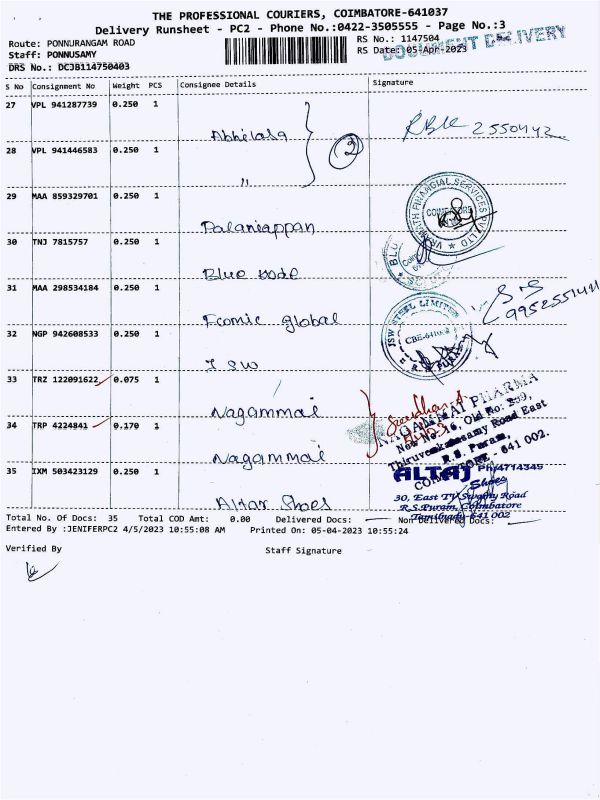 THE PROFESSIONAL COURIERS, COIMBATORE-641037
Delivery Runsheet - PC2 - Phone No.:0422-3505555 - Page No.:3
Route: PONNURANGAM ROAD
RS No.: 1147504
Staff: PONNUSAMY
RS Date: 05-Apr-2023
DOCUMENT DELIVERY
DRS No.: DCJB114750403
S No Consignment No Weight PCS Consignee Details Signature
27 VPL 941287739 0.250 1
2550442
28 VPL 941446583 0.250 1
2
"
29 MAA 859329701 0.250 1 Palaniappan
FINANCIAL SERVICES PVT LTD
30 TNJ 7815757 0.250 1 Blue
BLU
31 MAA 298534184 0.250 1 Fcomic global
JSW STEEL LIMITED
CBE-641002
32 NGP 942608533 0.250 1 JSW
33 TRZ 122091622 0.075 1 Nagammai
34 TRP 4224841 0.170 1 Nagammai
NAGAMMAI PHARMA
New No: 16, Old No:
Thiruvenkatasamy Road East
R.S. Puram,
COIMBATORE - 641 002.
35 IXM 503423129 0.250 1 Altar Shoes
ALTAJ Ph:4714345
Shoes
30, East TV Swamy Road
R.S.Puram, Coimbatore
Tamilnadu-641 002
Total No. Of Docs: 35 Total COD Amt: 0.00 Delivered Docs: Non Delivered Docs:
Entered By :JENIFERPC2 4/5/2023 10:55:08 AM Printed On: 05-04-2023 10:55:24
Verified By Staff Signature